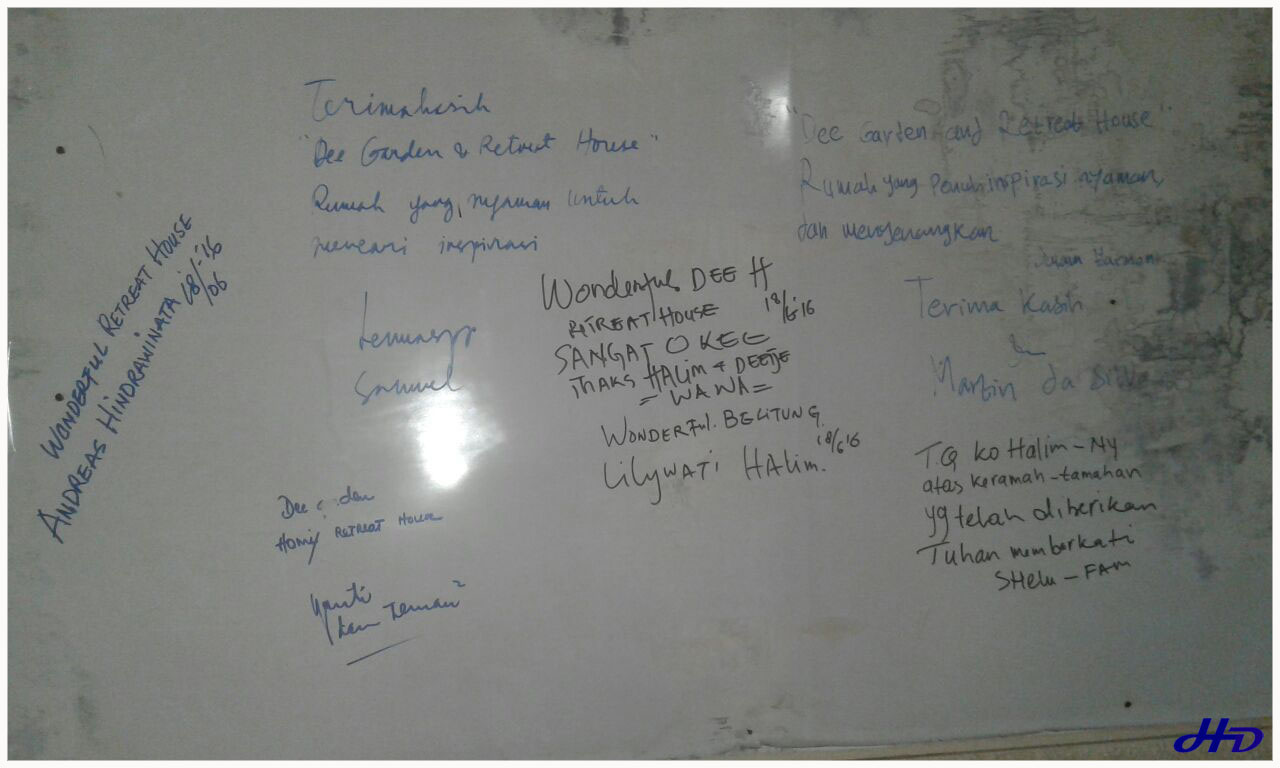 WONDERFUL RETREAT HOUSE
ANDREAS HINDRAWINATA 18/-'16
/06
Terimakasih
"Dee Garden & Retreat House"
Rumah yang nyaman untuk
mencari inspirasi
Samuel
Dee
Homy RETREAT HOUSE
Yanti
dan Teman²
Wonderful DEE H
RETREAT HOUSE 18/6'16
SANGAT OKEE
THAKS HALIM & DEETJE
= WAWA =
WONDERFUL BELITUNG
LILYWATI HALIM. 18/6'16
"Dee Garden and Retreat House"
Rumah yang penuh inspirasi nyaman,
dan menyenangkan
Terima Kasih
Martin da
T.Q ko Halim - Ny
atas keramah-tamahan
yg telah diberikan
Tuhan memberkati
SHelu - FAM
HD